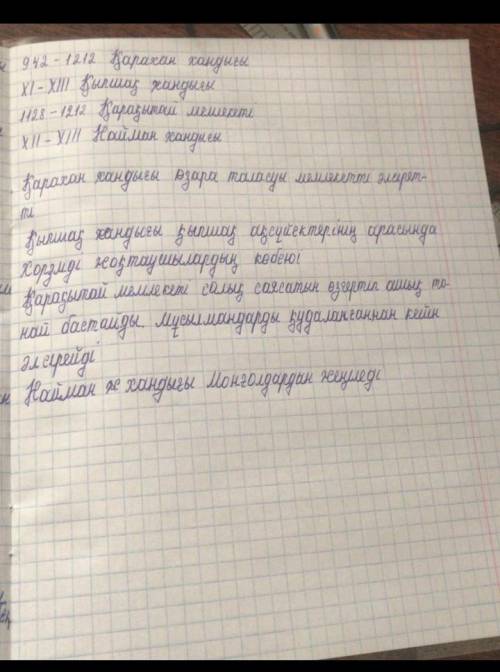 942 - 1212 Қарахан хандығы
XI - XIII Қыпшақ хандығы
1128 - 1212 Қарақытай мемлекеті
XII - XIII Найман хандығы
Қарахан хандығы өзара таласуы мемлекетті әлсірет-
ті
Қыпшақ хандығы қыпшақ ақсүйектерінің арасында
Хорзмді жоқтаушылардың көбеюі
Қарақытай мемлекеті салық саясатын өзгертіп ашық то-
най бастайды. Мұсылмандарды қудалағаннан кейн
әлсірейді
Найман ж хандығы Моңғолдардан жеңіледі